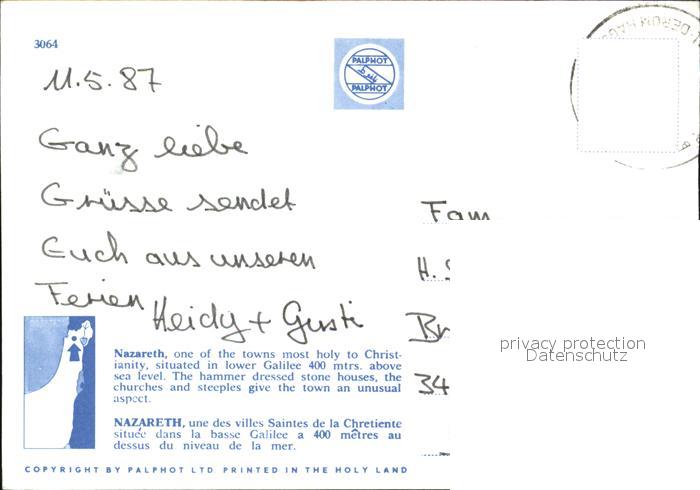 3064
PALPHOT
PALPHOT
11.5.87
Ganz liebe
Grüsse sendet
Euch aus unseren
Ferien
Heidy + Gusti
Fam
H.
Br
34
privacy protection
Datenschutz
Nazareth, one of the towns most holy to Christ-
ianity, situated in lower Galilee 400 mtrs. above
sea level. The hammer dressed stone houses, the
churches and steeples give the town an unusual
aspect.
NAZARETH, une des villes Saintes de la Chretiente
située dans la basse Galilee a 400 mêtres au
dessus du niveau de la mer.
COPYRIGHT BY PALPHOT LTD PRINTED IN THE HOLY LAND